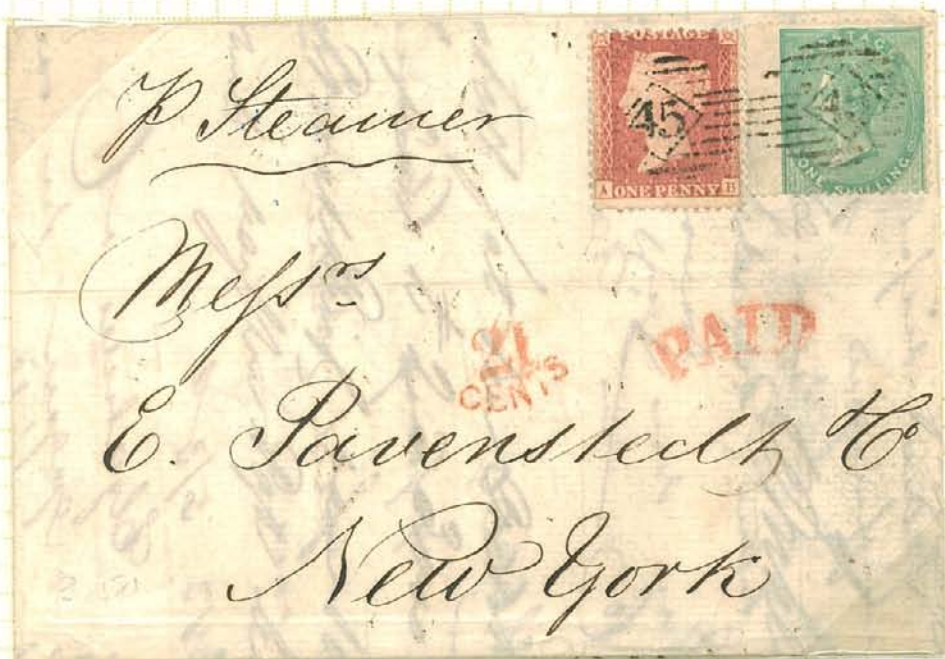 POSTAGE
45
A ONE PENNY B
POSTAGE
ONE SHILLING
p Steamer
Messrs
21
CENTS
PAID
E. Pavenstedt & Co
New York